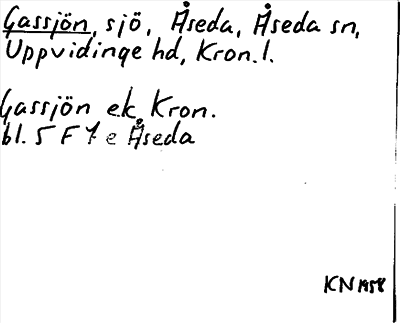 Gassjön, sjö, Åseda, Åseda sn,
Uppvidinge hd, Kron. l.
Gassjön ek, Kron.
bl. 5 F 7 e Åseda
KN 1958